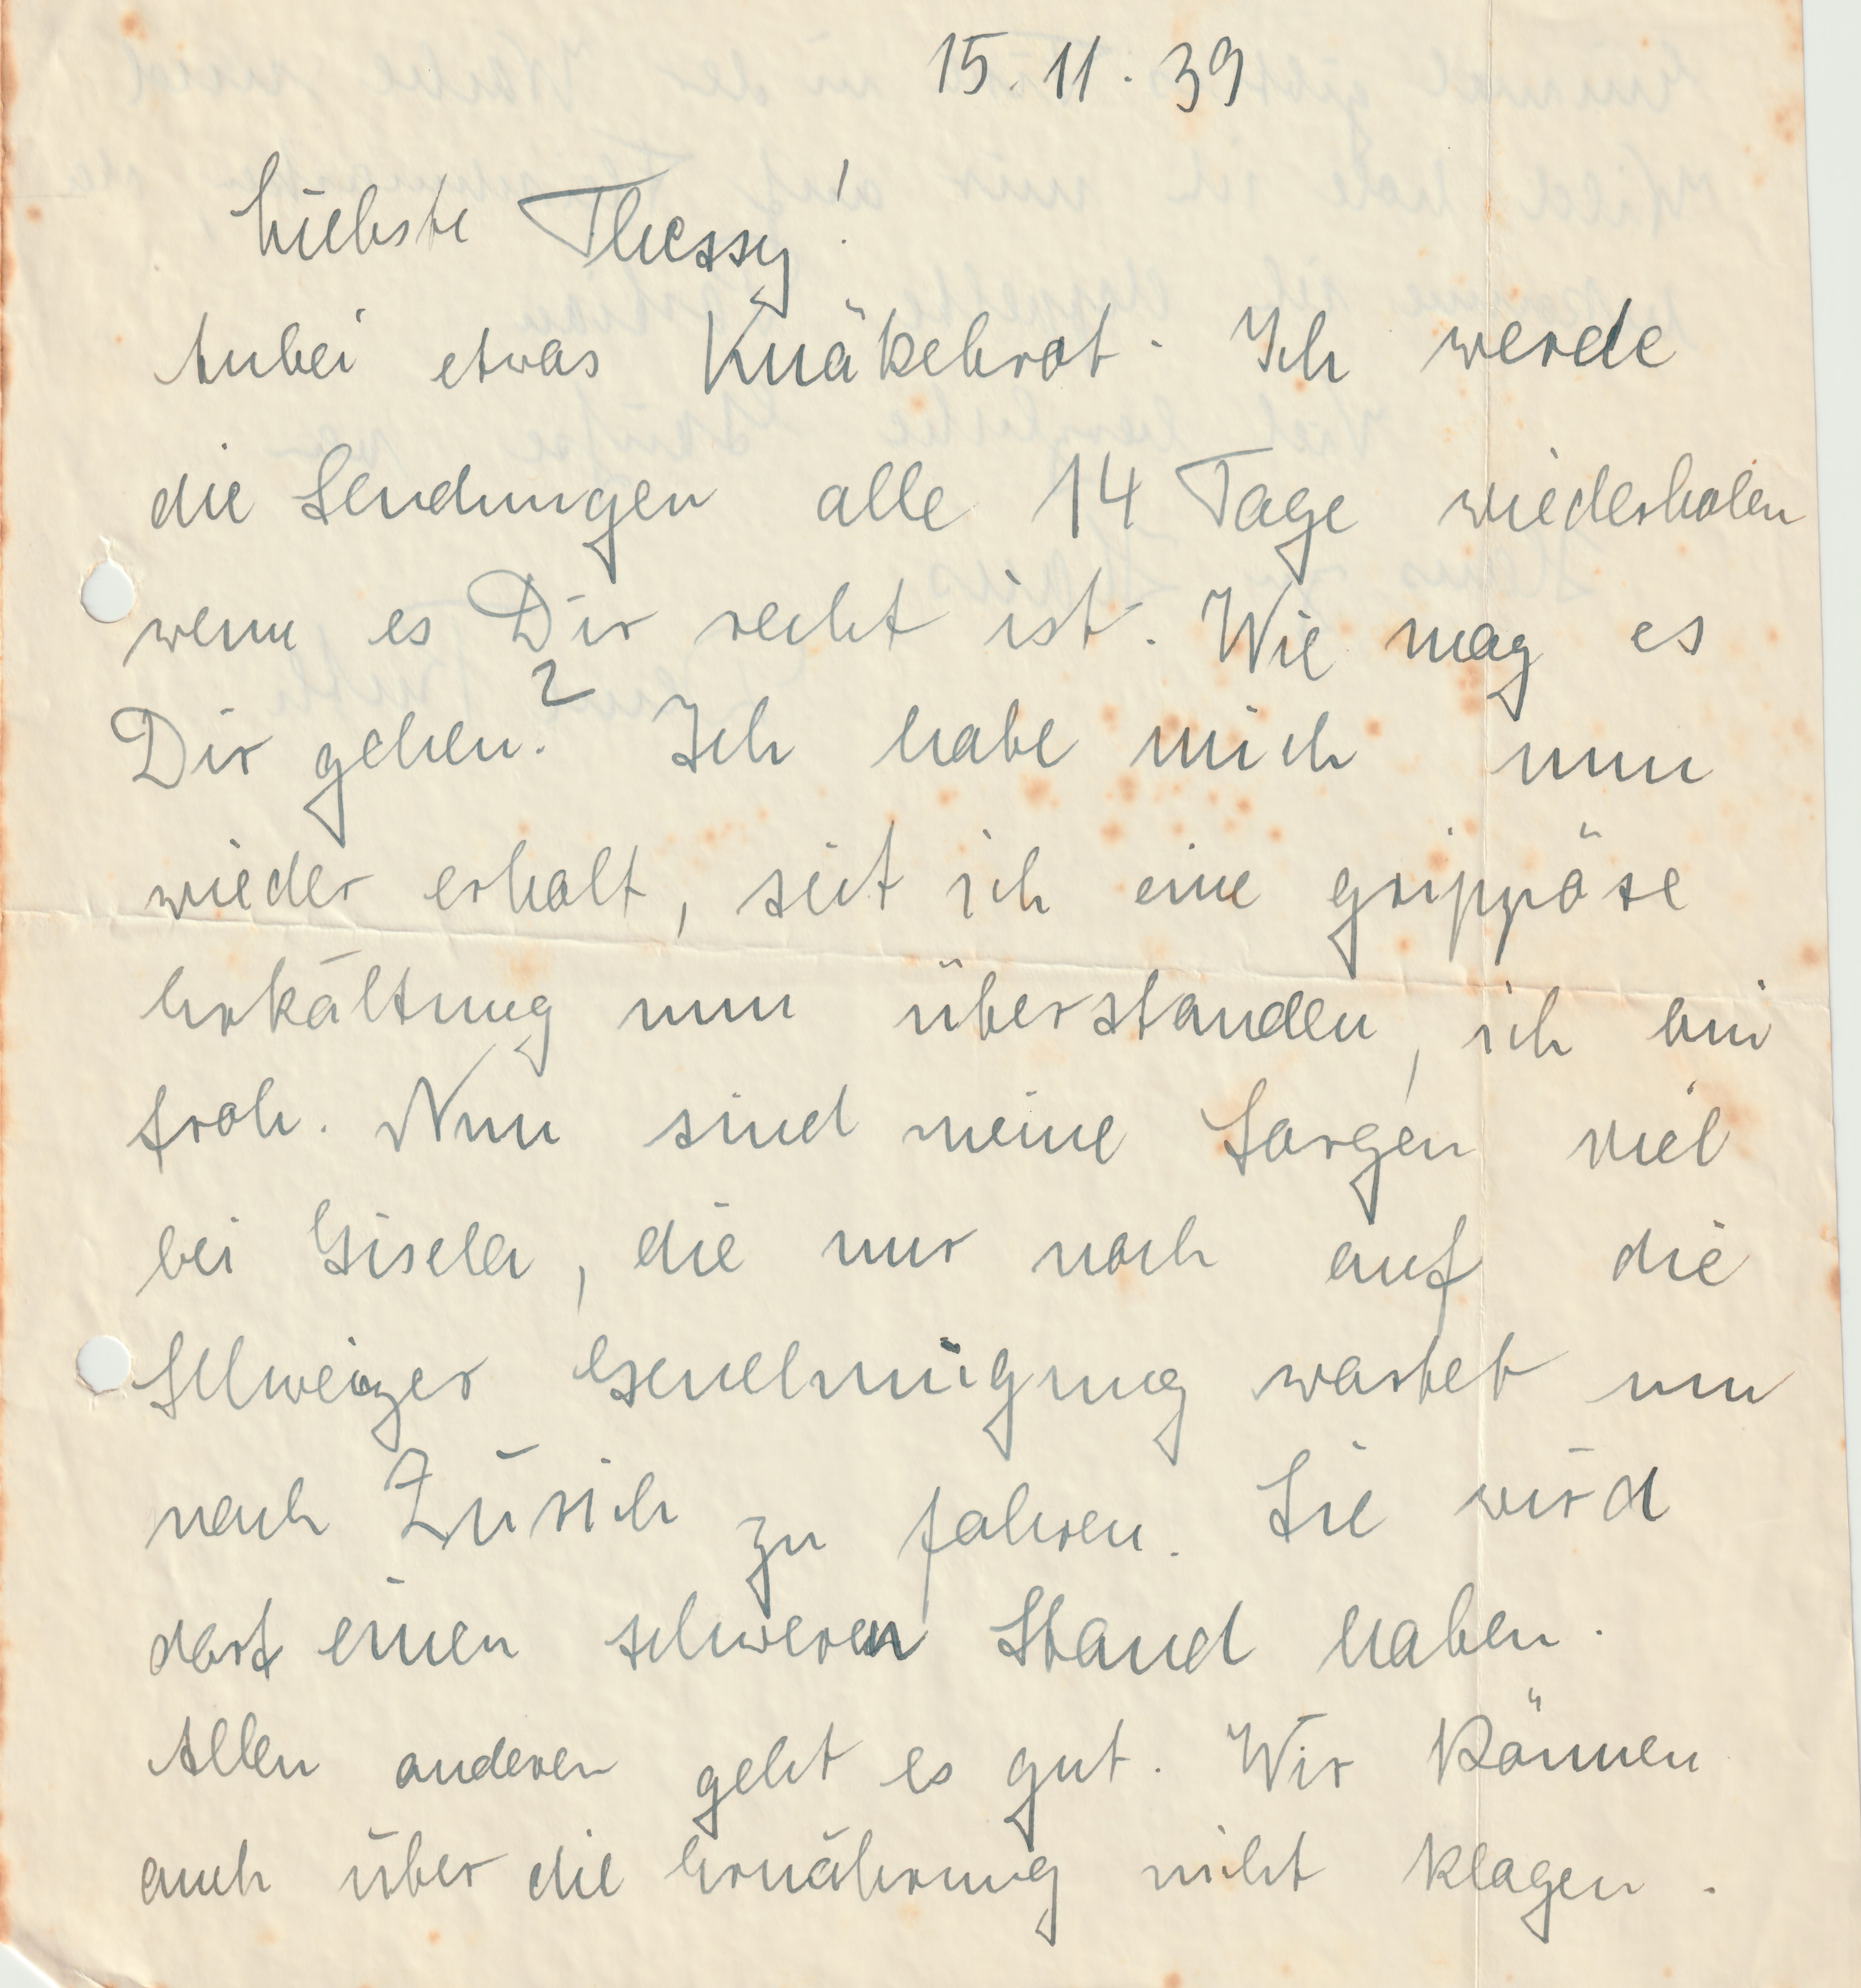 15.11.39
Liebste Thessy!
Anbei etwas Knäkebrot. Ich werde
die Sendungen alle 14 Tage wiederholen
wenn es Dir recht ist. Wie mag es
Dir gehen? Ich habe mich nun
wieder erholt, seit ich eine grippöse
Erkältung nun überstanden, ich bin
froh. Nun sind meine Sorgen viel
bei Gisela, die nur noch auf die
Schweizer Genehmigung wartet um
nach Zürich zu fahren. Sie wird
dort einen schweren Stand haben.
Allen anderen geht es gut. Wir können
auch über die Ernährung nicht klagen.